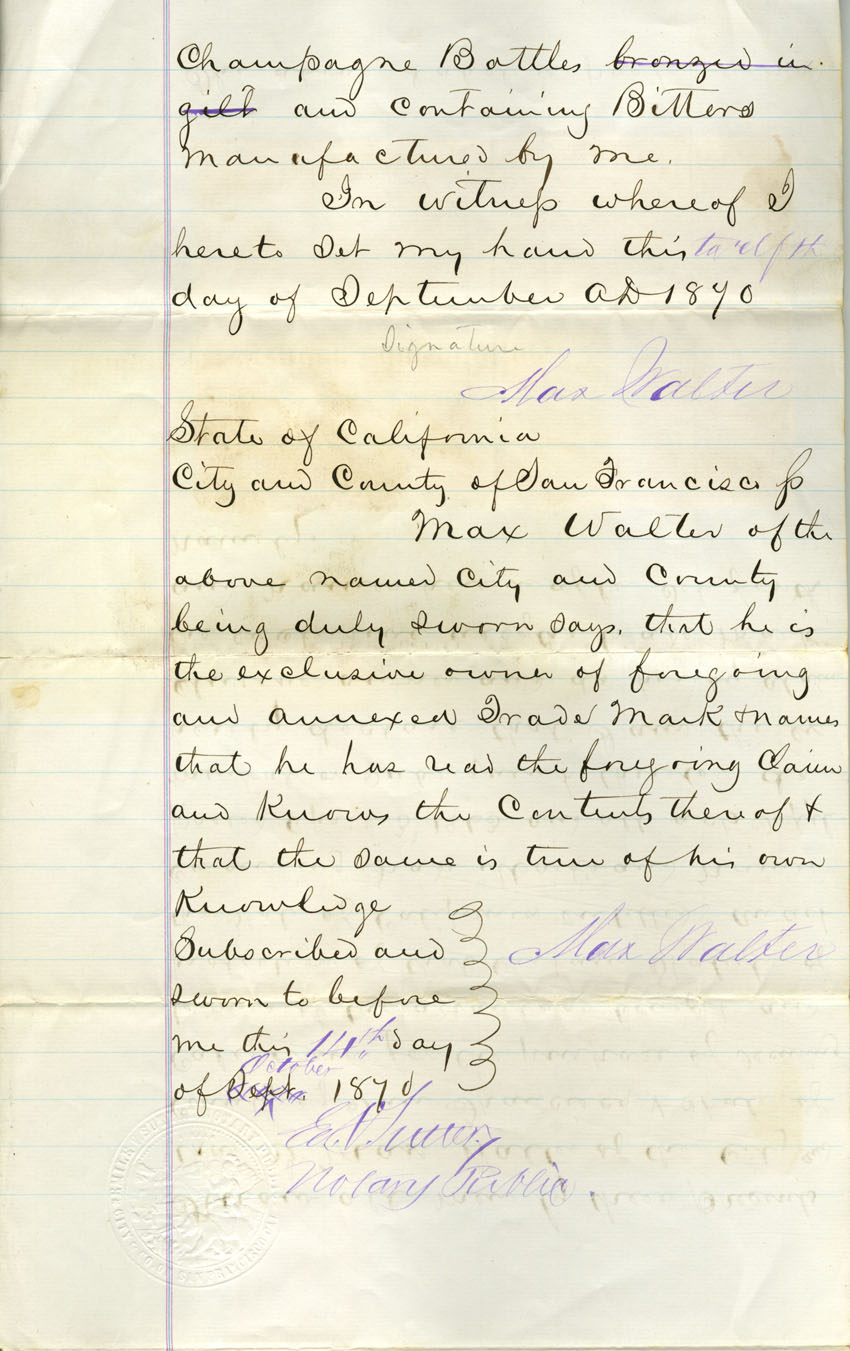 Champagne Bottles bronzed in
gilt and containing Bitters
manufactured by me.
In witness whereof I
hereto set my hand this twelfth
day of September AD 1870
Signature
Max Walter
State of California
City and County of San Francisco ss
Max Walter of the
above named City and County
being duly sworn says, that he is
the exclusive owner of foregoing
and annexed Trade Mark & names
that he has read the foregoing Claim
and Knows the Contents thereof &
that the same is true of his own
Knowledge
Subscribed and
Max Walter
sworn to before
me this 14th day
October
of Sept. 1870
Notary Public.